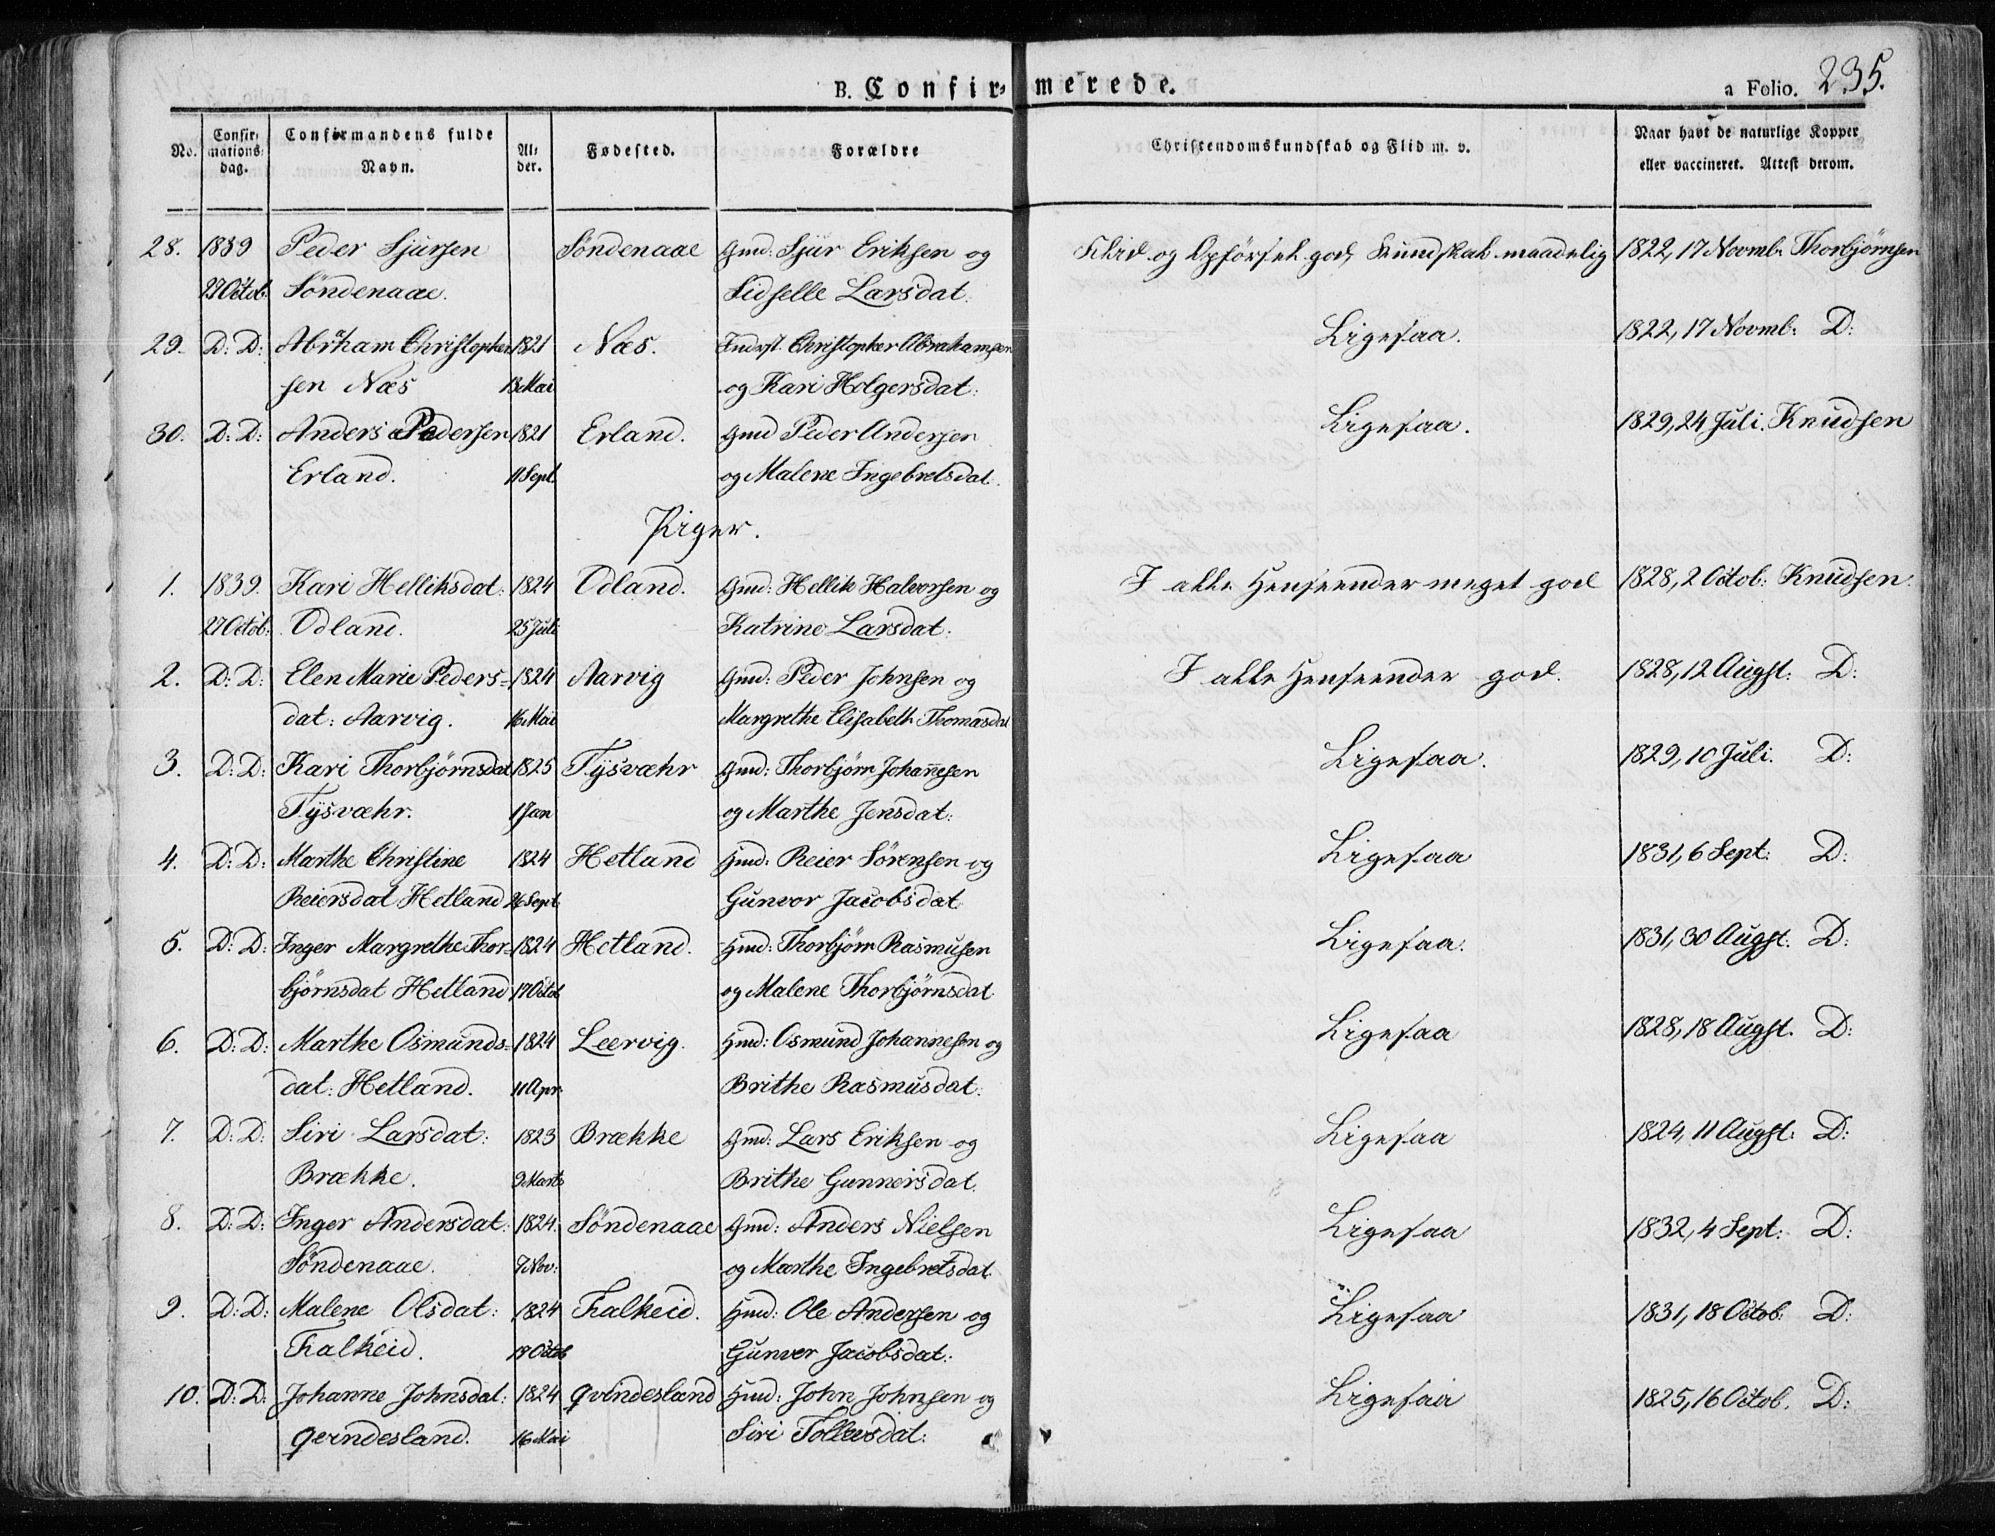 B. Confirmerede.
a Folio. 235.
No. Confirmationsdag. Confirmandens fulde Navn. Alder. Fødested. Forældre Christendomskundskab og Flid m. v. Naar havt de naturlige Kopper eller vaccineret. Attest derom.
28. 1839 Peder Sjursen Söndenaae Gmd: Sjur Eriksen og Flid og Opförsel god, Kundskab maadelig 1822, 17 Novmb. Thorbjörnsen
27 Octob. Söndenaae. Sidselle Larsdat:
29. D: D: Abraham Christopher 1821 Næs. Inderst. Christopher Abrahamsen Ligesaa. 1822, 17 Novmb: D:
sen Næs 13 Mai og Kari Holgersdat:
30. D: D: Anders Pedersen 1821 Erland. Gmd Peder Andersen Ligesaa. 1829, 24 Juli. Knudsen
Erland. 11 Sept. og Malene Ingebretsdat.
Piger.
1. 1839. Kari Helliksdat: 1824 Odland. Gmd: Hellik Halvorsen og I alle Henseender meget god 1828, 2 Octob: Knudsen.
27 Octob: Odland. 25 Juli Katrine Larsdat:
2. D: D: Elen Marie Peders- 1824 Aarvig Gmd: Peder Johnsen og I alle Henseender god. 1828, 12 Augst: D:
dat: Aarvig. 16 Mai Margrethe Elisabeth Thomasdat
3. D: D: Kari Thorbjörnsdat 1825 Tysvæhr Gmd: Thorbjörn Johannesen Ligesaa. 1829, 10 Juli. D:
Tysvæhr. 1 Jan og Marthe Jensdat:
4. D: D: Marthe Christine 1824 Hetland Hmd: Reier Sörensen og Ligesaa 1831, 6 Sept: D:
Reiersdat Hetland 26 Sept. Gunvor Jacobsdat
5. D: D: Inger Margrethe Thor- 1824 Hetland. Hmd: Thorbjörn Rasmusen Ligesaa. 1831, 30 Augst: D:
björnsdat Hetland 17 Octob og Malene Thorbjörnsdat
6. D: D: Marthe Osmunds- 1824 Leervig. Hmd: Osmund Johannesen og Ligesaa 1828, 18 Augst. D:
dat: Hetland. 11 Apr. Brithe Rasmusdat:
7. D: D: Siri Larsdat: 1823 Brække Gmd: Lars Eriksen og Ligesaa 1824, 11 Augst: D:
Brække. 9 Marts Brithe Gunnersdat.
8. D: D: Inger Andersdat: 1824. Söndenaae Gmd: Anders Nielsen Ligesaa 1832, 4 Sept: D:
Söndenaae. 7 Nov: og Marthe Ingebretsdat
9. D: D: Malene Olsdat: 1824 Falkeid. Hmd: Ole Andersen og Ligesaa 1831, 18 Octob: D:
Falkeid. 19 Octob Gunver Jacobsdat:
10. D: D: Johanne Johnsdat: 1824 Qvindesland Hmd: John Johnsen og Ligesaa 1825, 16 Octob. D:
Qvindesland. 16 Mai Siri Tollevsdat: